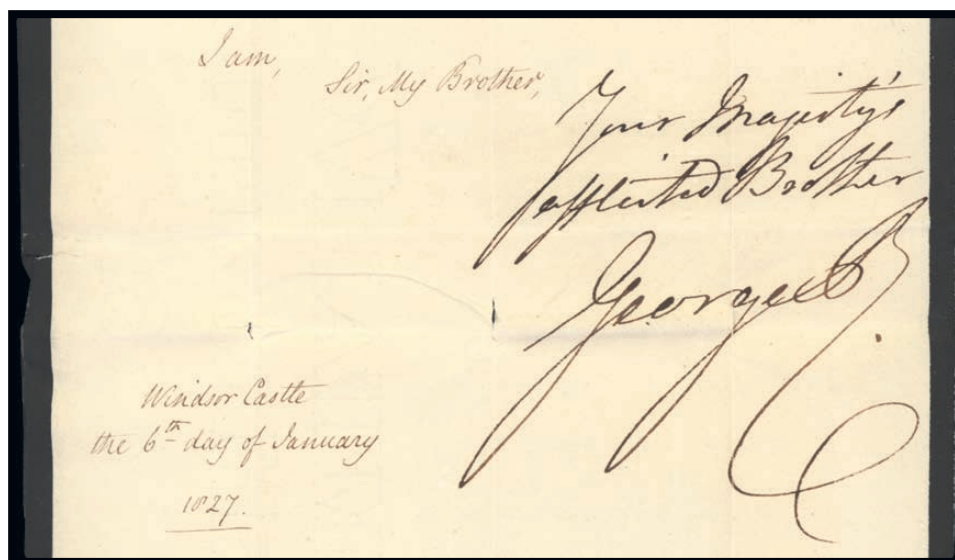 I am,
Sir, My Brother,
Your Majesty's
afflicted Brother
George R.
Windsor Castle
the 6th day of January
1827.